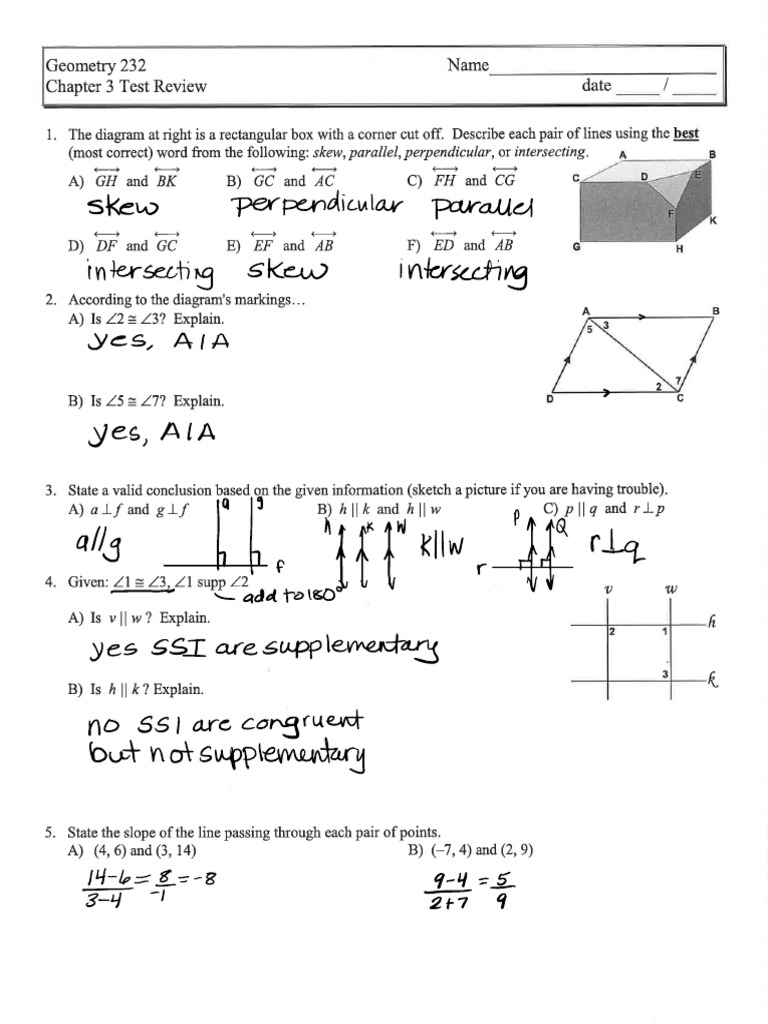 Geometry 232 Name
Chapter 3 Test Review date / 
1. The diagram at right is a rectangular box with a corner cut off. Describe each pair of lines using the best
(most correct) word from the following: skew, parallel, perpendicular, or intersecting.
A B
C D E
F
K
G H
A) GH and BK B) GC and AC C) FH and CG
skew perpendicular parallel
D) DF and GC E) EF and AB F) ED and AB
intersecting skew intersecting
2. According to the diagram's markings…
A) Is ∠2 ≅ ∠3? Explain.
yes, AIA
A B
5 3
2 7
D C
B) Is ∠5 ≅ ∠7? Explain.
yes, AIA
3. State a valid conclusion based on the given information (sketch a picture if you are having trouble).
A) a ⊥ f and g ⊥ f B) h || k and h || w C) p || q and r ⊥ p
a//g a g f h k w k||w P Q r r⊥q
4. Given: ∠1 ≅ ∠3, ∠1 supp ∠2
add to 180°
A) Is v || w ? Explain.
yes SSI are supplementary
v w
2 1 h
3 k
B) Is h || k ? Explain.
no SSI are congruent
but not supplementary
5. State the slope of the line passing through each pair of points.
A) (4, 6) and (3, 14) B) (–7, 4) and (2, 9)
14-6 = 8 = -8 9-4 = 5
3-4 -1 2+7 9